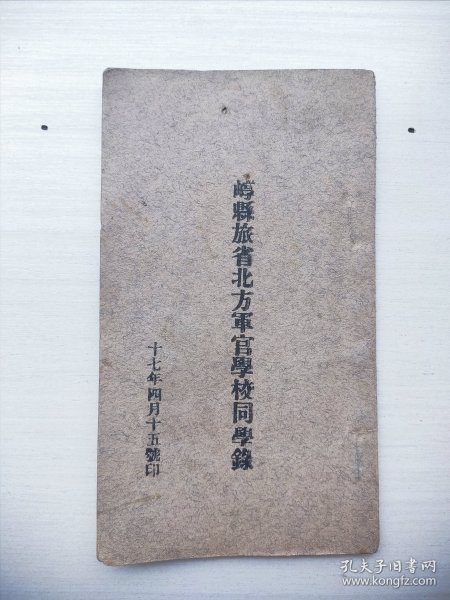 崞縣旅省北方軍官學校同學錄
十七年四月十五號印
孔夫子旧书网
www.kongfz.com